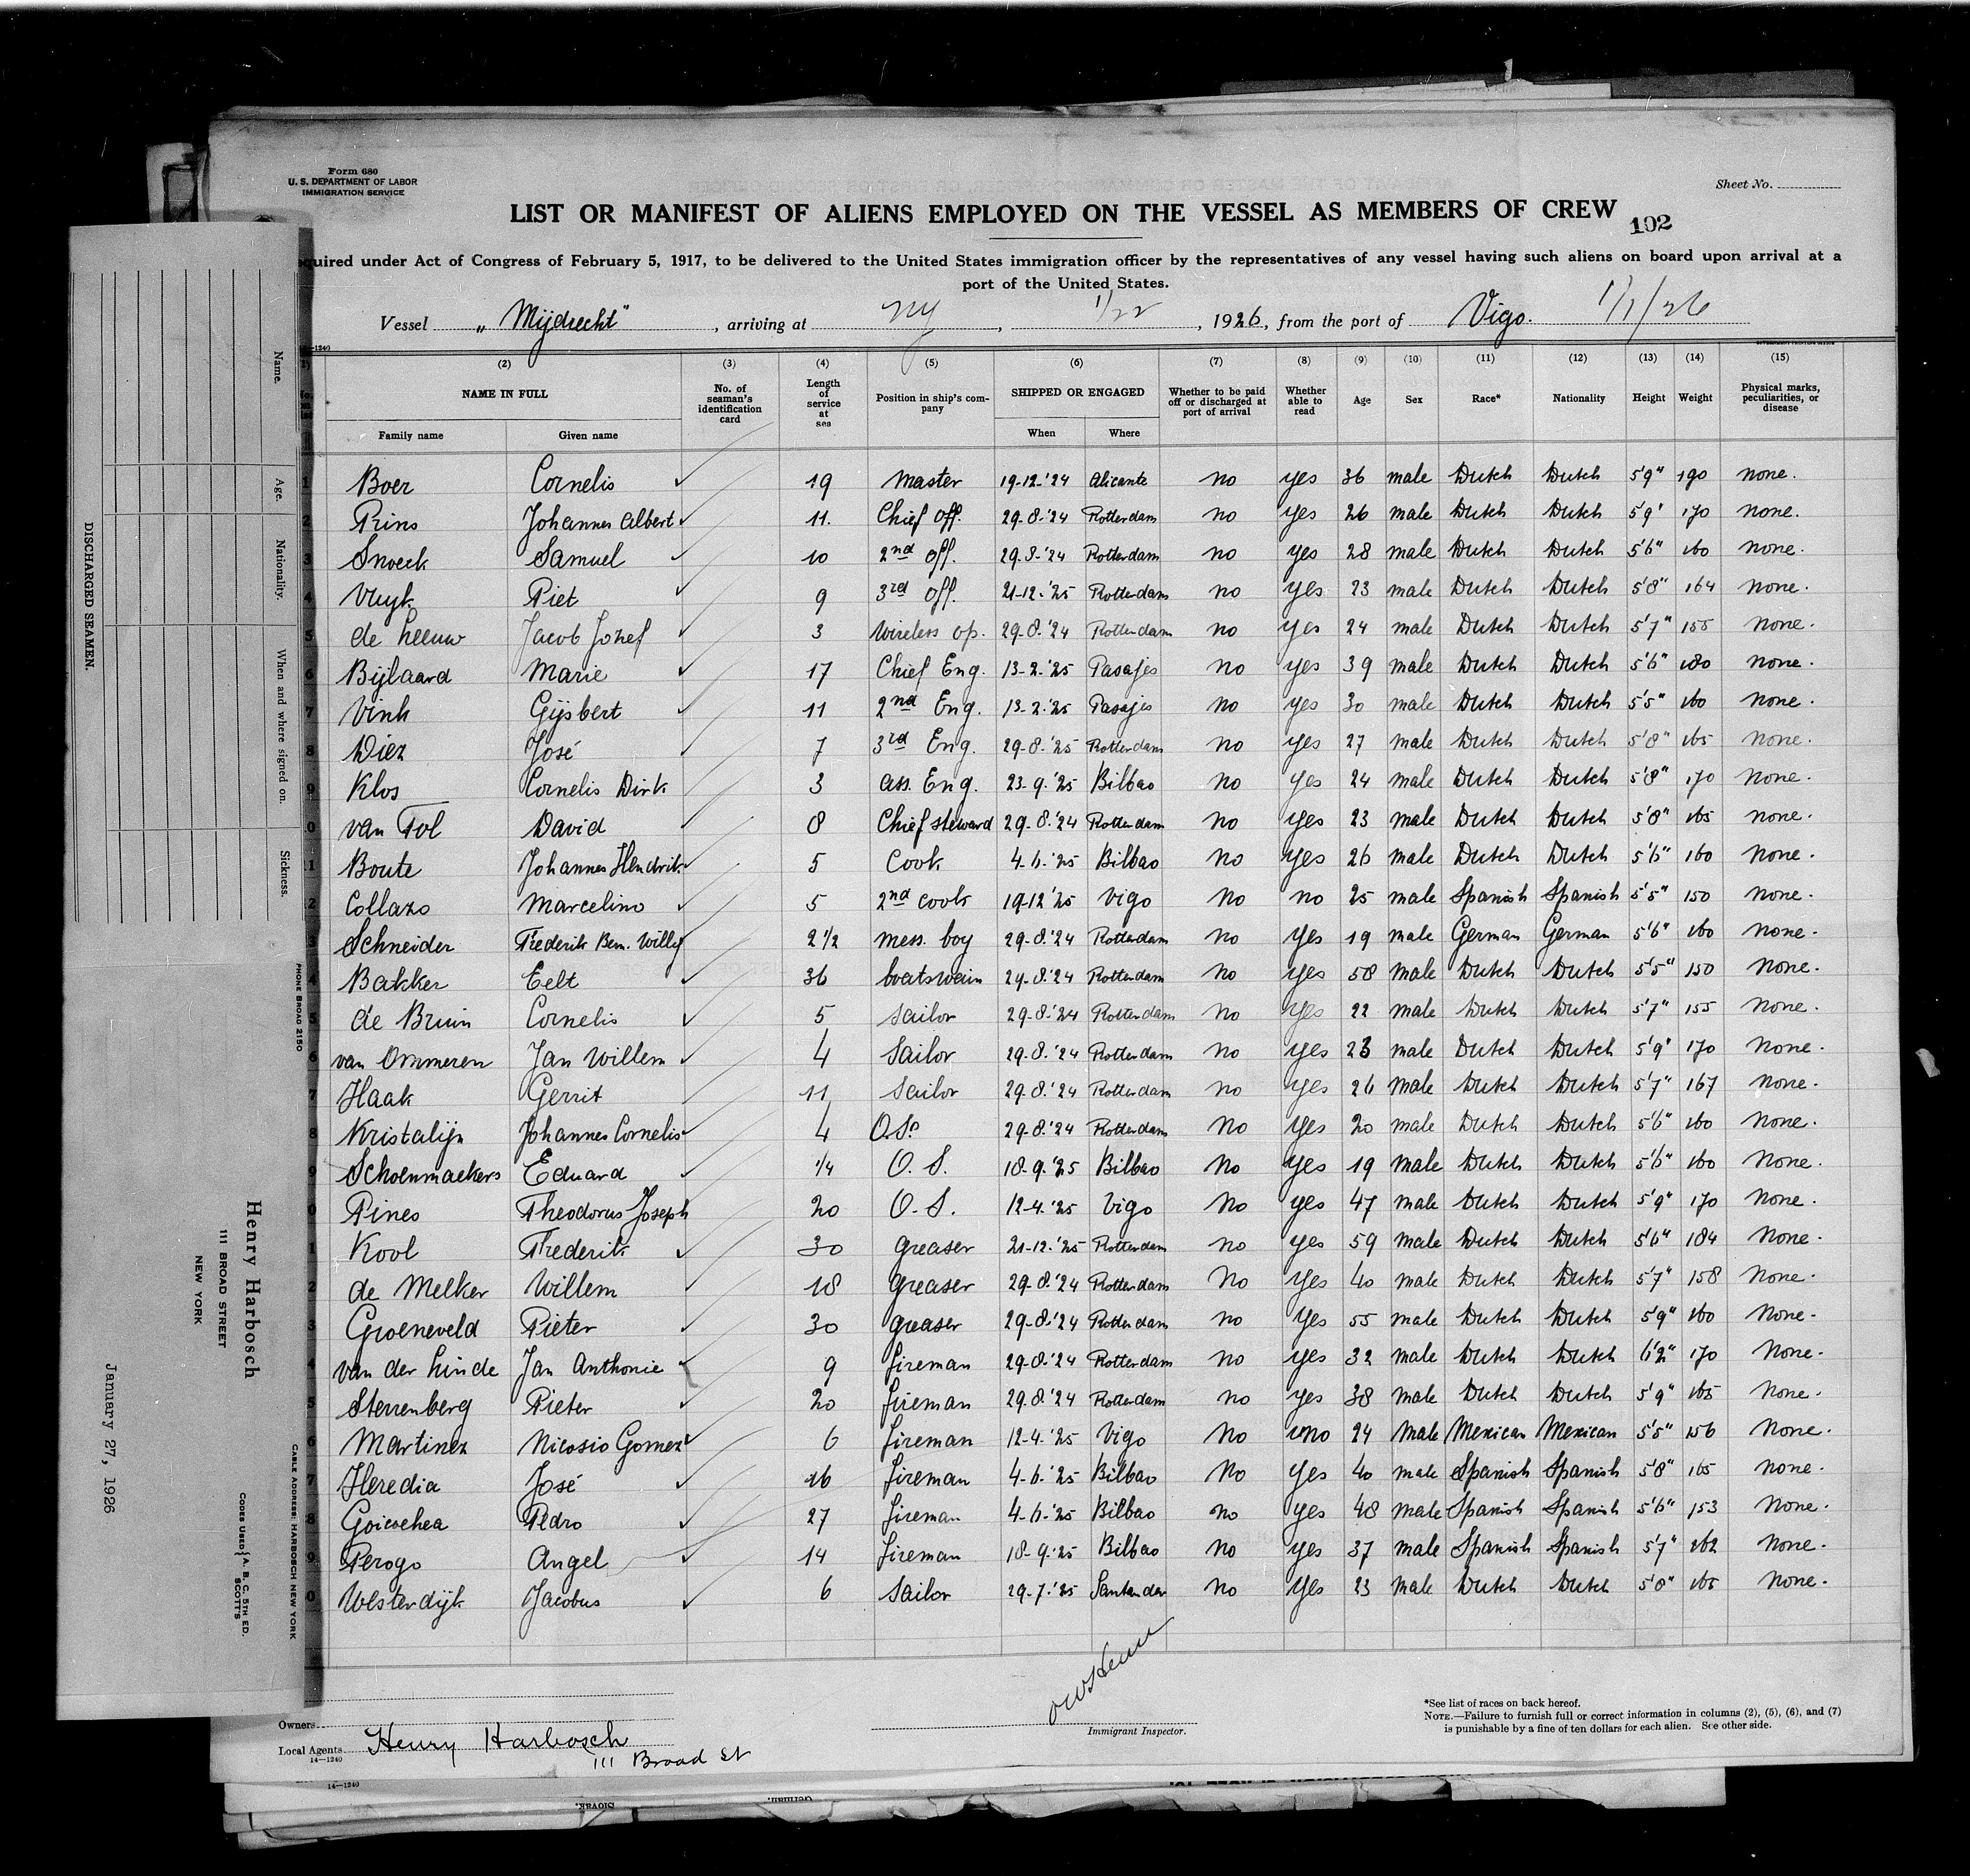 Form 680
U. S. DEPARTMENT OF LABOR
IMMIGRATION SERVICE
Sheet No.
LIST OR MANIFEST OF ALIENS EMPLOYED ON THE VESSEL AS MEMBERS OF CREW
102
quired under Act of Congress of February 5, 1917, to be delivered to the United States immigration officer by the representatives of any vessel having such aliens on board upon arrival at a
port of the United States.
Vessel „Mijdrecht", arriving at NY, 1/22, 1926, from the port of Vigo. 1/1/26
(2) (3) (4) (5) (6) (7) (8) (9) (10) (11) (12) (13) (14) (15)
NAME IN FULL
Family name Given name
No. of seaman's identification card
Length of service at sea
Position in ship's company
SHIPPED OR ENGAGED
When Where
Whether to be paid off or discharged at port of arrival
Whether able to read
Age Sex Race* Nationality Height Weight
Physical marks, peculiarities, or disease
1 Boer Cornelis ✓ 19 Master 19-12-'24 Alicante no yes 36 male Dutch Dutch 5'9" 190 none.
2 Prins Johannes Albert ✓ 11. Chief Off. 29-8-'24 Rotterdam no yes 26 male Dutch Dutch 5'9' 170 none.
3 Snoeck Samuel ✓ 10 2nd Off. 29-8-'24 Rotterdam no yes 28 male Dutch Dutch 5'6" 160 none.
4 Vuyk Piet ✓ 9 3rd Off. 21-12-'25 Rotterdam no yes 23 male Dutch Dutch 5'8" 164 none.
5 de Leeuw Jacob Jozef ✓ 3 Wireless op. 29-8-'24 Rotterdam no yes 24 male Dutch Dutch 5'7" 155 none.
6 Bijlaard Marie ✓ 17 Chief Eng. 13-2-'25 Pasajes no yes 39 male Dutch Dutch 5'6" 180 none.
7 Vink Gijsbert ✓ 11 2nd Eng. 13-2-'25 Pasajes no yes 30 male Dutch Dutch 5'5" 160 none.
8 Diez José ✓ 7 3rd Eng. 29-8-'25 Rotterdam no yes 27 male Dutch Dutch 5'8" 165 none.
9 Klos Cornelis Dirk 3 Ass. Eng. 23-9-'25 Bilbao no yes 24 male Dutch Dutch 5'8" 170 none.
0 van Tol David 8 Chief steward 29-8-'24 Rotterdam no yes 23 male Dutch Dutch 5'8" 165 none.
11 Boute Johannes Hendrik ✓ 5 Cook 4-6-'25 Bilbao no yes 26 male Dutch Dutch 5'6" 160 none.
2 Collazo Marcelino ✓ 5 2nd cook 19-12'25 Vigo no no 25 male Spanish Spanish 5'5" 150 none.
3 Schneider Frederik Ben. Willy 2 1/2 mess. boy 29-8-'24 Rotterdam no yes 19 male German German 5'6" 160 none.
4 Bakker Eelt ✓ 36 boatswain 29-8-'24 Rotterdam no yes 58 male Dutch Dutch 5'5" 150 none.
5 de Bruin Cornelis ✓ 5 sailor 29-8-'24 Rotterdam no yes 22 male Dutch Dutch 5'7" 155 none.
6 van Ommeren Jan Willem ✓ 4 Sailor 29-8-'24 Rotterdam no yes 23 male Dutch Dutch 5'9" 170 none.
7 Haak Gerrit 11 sailor 29-8-'24 Rotterdam no yes 26 male Dutch Dutch 5'7" 167 none.
8 Kristalijn Johannes Cornelis ✓ 4 O.S. 29-8-'24 Rotterdam no yes 20 male Dutch Dutch 5'6" 160 none.
9 Schoenmaekers Eduard ✓ 1/4 O. S. 18-9-'25 Bilbao no yes 19 male Dutch Dutch 5'6" 160 none.
0 Pines Theodorus Joseph 20 O. S. 12-4-'25 Vigo no yes 47 male Dutch Dutch 5'9" 170 none.
1 Kool Frederik ✓ 30 greaser 21-12-'25 Rotterdam no yes 59 male Dutch Dutch 5'6" 184 none.
2 de Melker Willem ✓ 18 greaser 29-8-'24 Rotterdam no yes 40 male Dutch Dutch 5'7" 158 none.
3 Groeneveld Pieter ✓ 30 greaser 29-8-'24 Rotterdam no yes 55 male Dutch Dutch 5'9" 160 none.
4 van der Linde Jan Anthonie ✓ 9 fireman 29-8-'24 Rotterdam no yes 32 male Dutch Dutch 6'2" 170 none.
5 Sterrenberg Pieter ✓ 20 fireman 29-8-'24 Rotterdam no yes 38 male Dutch Dutch 5'9" 165 none.
6 Martinez Nicosio Gomez ✓ 6 fireman 12-4-'25 Vigo no no 24 male Mexican Mexican 5'5" 156 none.
7 Heredia José ✓ 16 fireman 4-6-'25 Bilbao no yes 40 male Spanish Spanish 5'8" 165 none.
8 Goicochea Pedro ✓ 27 fireman 4-6-'25 Bilbao no yes 48 male Spanish Spanish 5'6" 153 none.
9 Perogo Angel ✓ 14 fireman 18-9-'25 Bilbao no yes 37 male Spanish Spanish 5'7" 162 none.
0 Westerdijk Jacobus ✓ 6 sailor 29-7-'25 Santander no yes 23 male Dutch Dutch 5'8" 165 none.
Immigrant Inspector.
Owners
Local Agents Henry Harbosch
111 Broad St
14—1240
*See list of races on back hereof.
NOTE.—Failure to furnish full or correct information in columns (2), (5), (6), and (7)
is punishable by a fine of ten dollars for each alien. See other side.
14—1240
DISCHARGED SEAMEN.
Name. Age. Nationality. When and where signed on. Sickness.
PHONE BROAD 2150
Henry Harbosch
111 BROAD STREET
NEW YORK
CABLE ADDRESS: HARBOSCH NEW YORK
CODES USED { A. B. C. 5TH ED.
SCOTT'S
January 27, 1926
German.
Slovak.